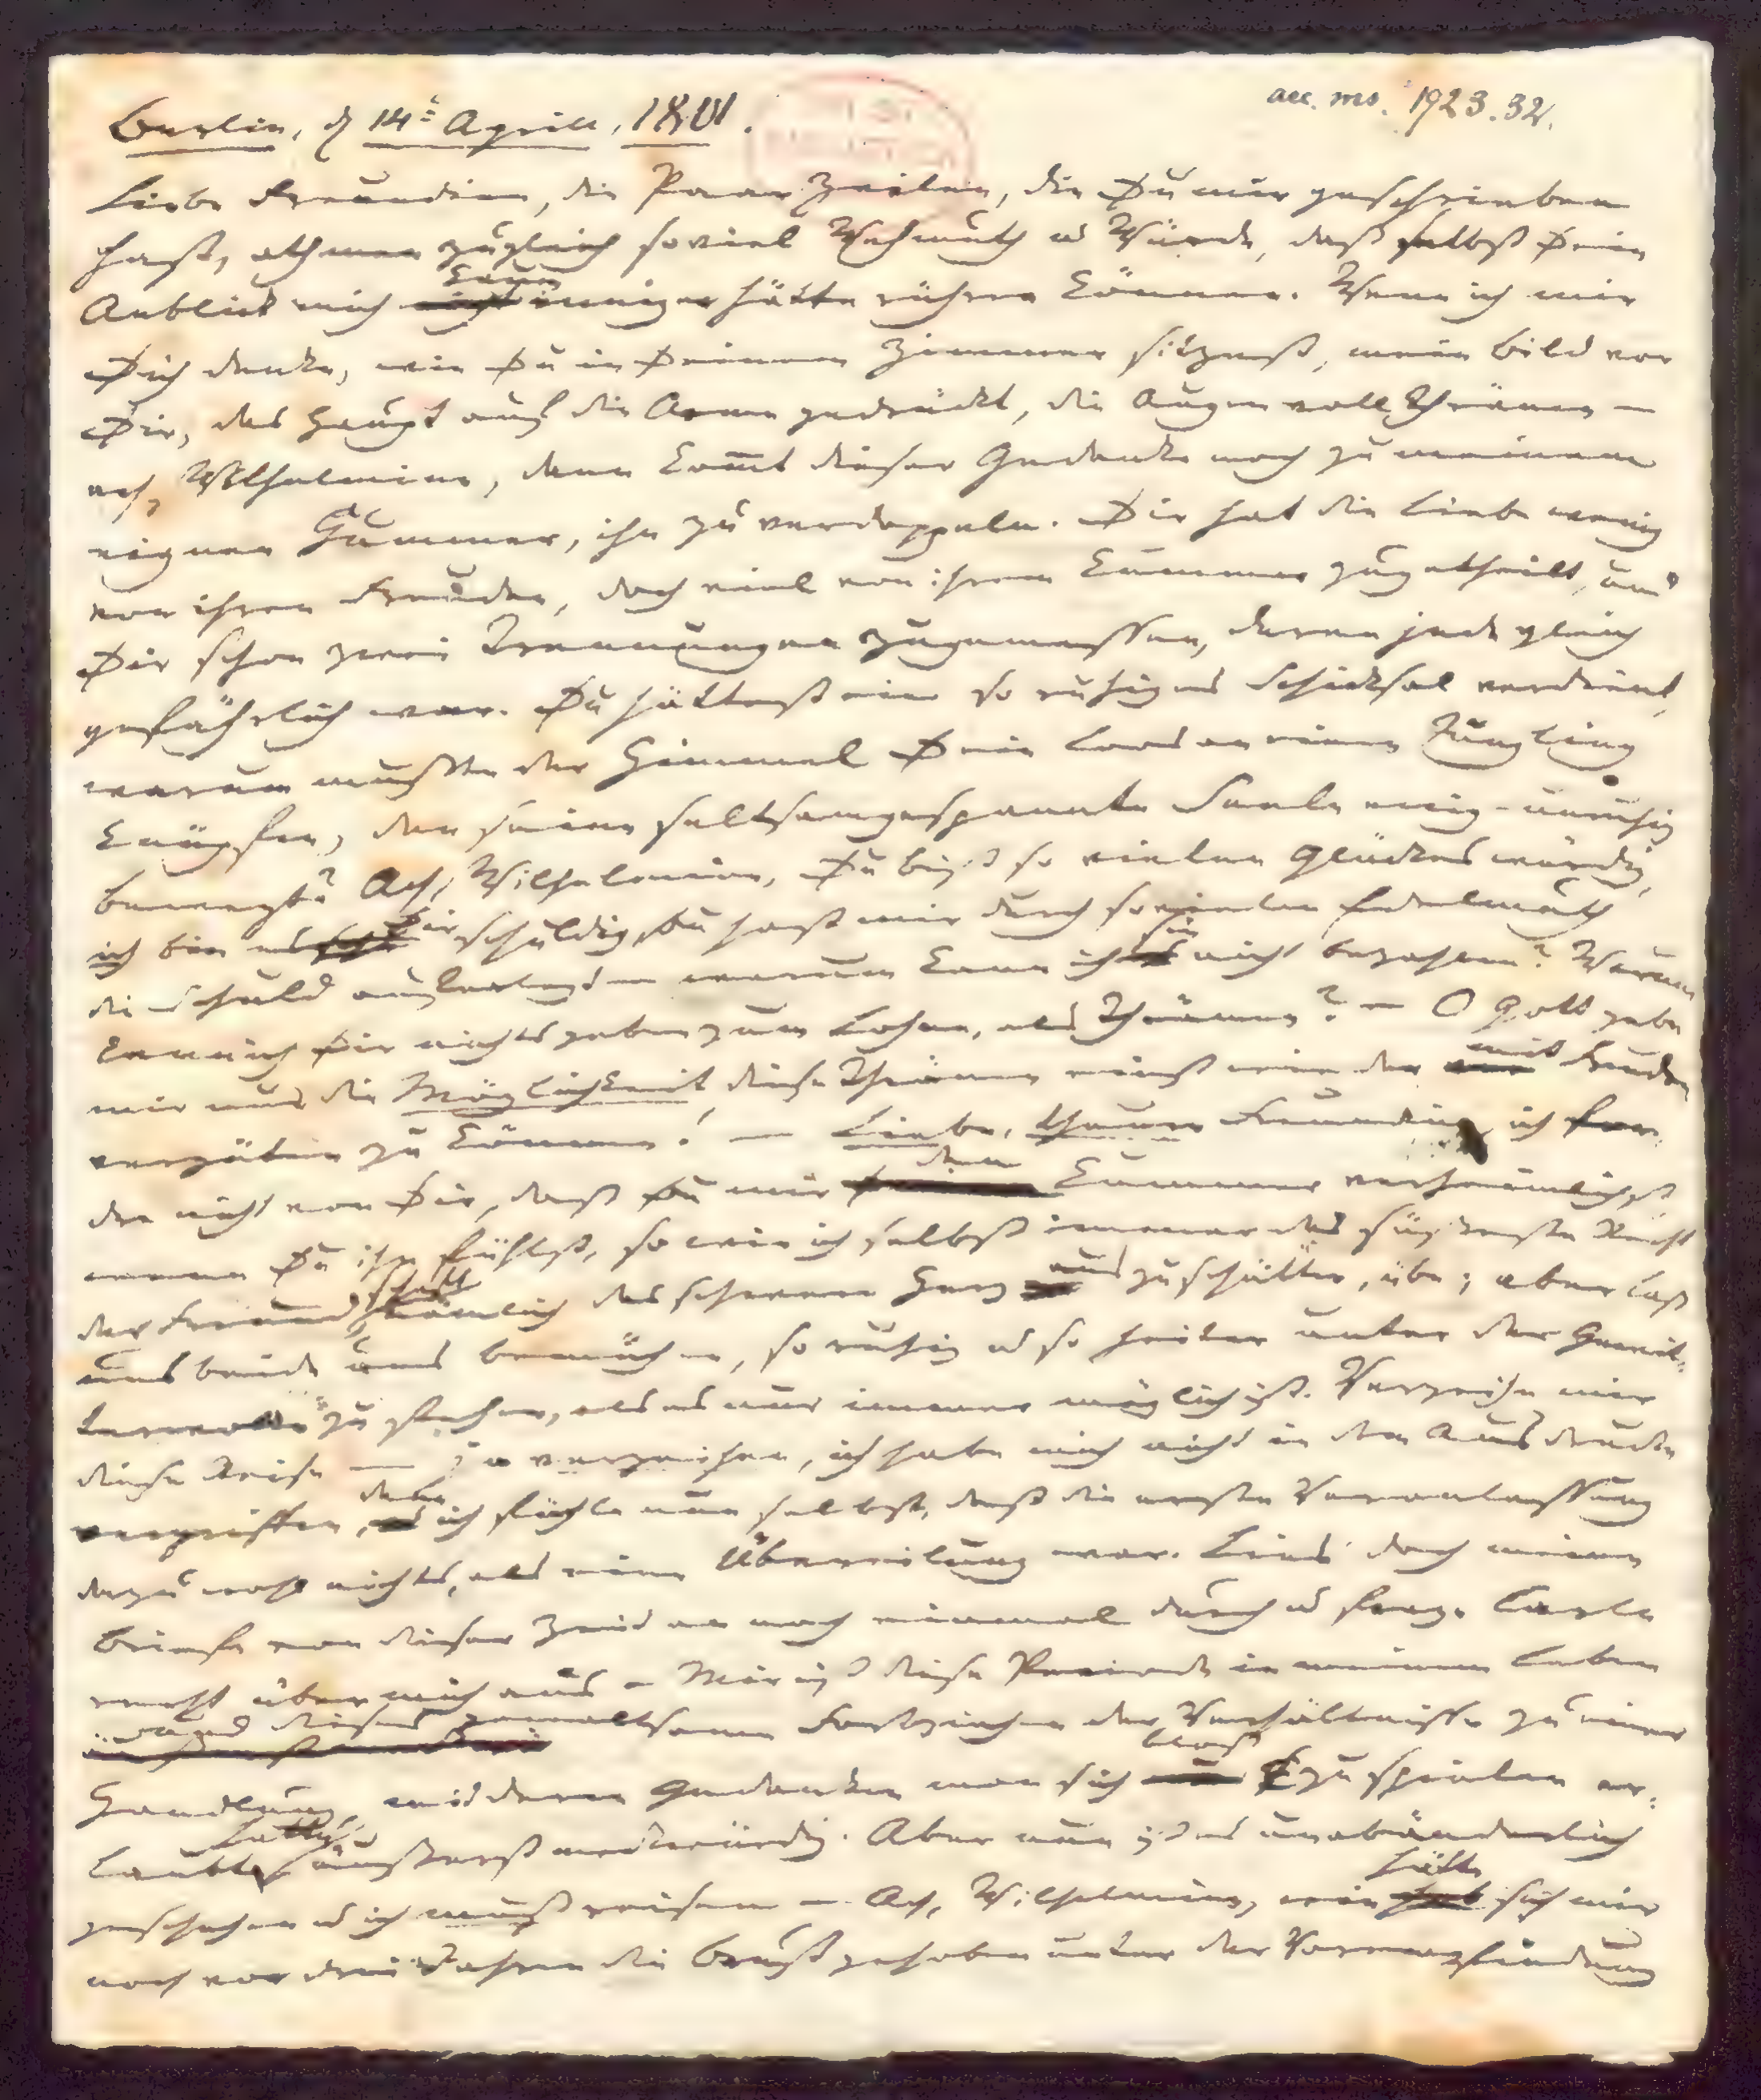 Berlin, d 14t April, 1801.
acc. ms. 1923.32.
Liebe Freundinn, die Paar Zeilen, die Du mir geschrieben
hast, athmen zugleich so viel Wehmuth u Würde, daß selbst Dein
Anblick mich kaum inniger hätte rühren können. Wenn ich mir
Dich denke, wie Du in Deinem Zimmer sitzest, mein Bild vor
Dir, das Haupt auf die Arme gedrückt, die Augen voll Thränen –
ach, Wilhelmine, dann kommt dieser Gedanke noch zu meinem
eignen Kummer, ihn zu verdoppeln. Dir hat die Liebe wenig
von ihren Freuden, doch viel von ihrem Kummer zugetheilt, und
Dir schon zwei Trennungen zugemessen, deren jede gleich
gefährlich war. Du hättest ein so ruhiges Schicksal verdient,
warum mußte der Himmel Dein Loos an einen Jüngling
knüpfen, den seine seltsamgespannte Seele ewig-unruhig
bewegt? Ach, Wilhelmine, Du bist so vielen Glückes würdig,
ich bin es Dir schuldig, Du hast mir durch so vielen Edelmuth
die Schuld auferlegt – warum kann ich sie nicht bezahlen? Warum
kann ich Dir nichts geben zum Lohne, als Thränen? – O Gott gebe
mir nur die Möglichkeit diese Thränen einst wieder mit Freuden
vergüten zu können! – Liebe, theure Freundinn, ich for-
dre nicht von Dir, daß Du mir den Kummer verheimlichst
wenn Du ihn fühlst, so wie ich selbst immer das süßeste Recht
der Freundschaft, nämlich das schwere Herz auszuschütten, übe; aber laß
uns beide uns bemühen, so ruhig u so heiter unter der Gewit-
terwolke zu stehen, als es nur immer möglich ist. Verzeihe mir
diese Reise – ja verzeihen, ich habe mich nicht in dem Ausdrucke
vergriffen, denn ich fühle nun selbst, daß die erste Veranlassung
dazu wohl nichts, als eine Übereilung war. Lies doch meine
Briefe von dieser Zeit an noch einmal durch u frage Carln
recht über mich aus – Mir ist diese Periode in meinem Leben
und dieses gewaltsame Fortziehen der Verhältnisse zu einer
Handlung, mit deren Gedanken man sich bloß zu spielen er-
laubt hatte, äußerst merkwürdig. Aber nun ist es unabänderlich
geschehen u ich muß reisen – Ach, Wilhelmine, wie hätte sich mir
noch vor drei Jahren die Brust gehoben unter der Vorempfindung